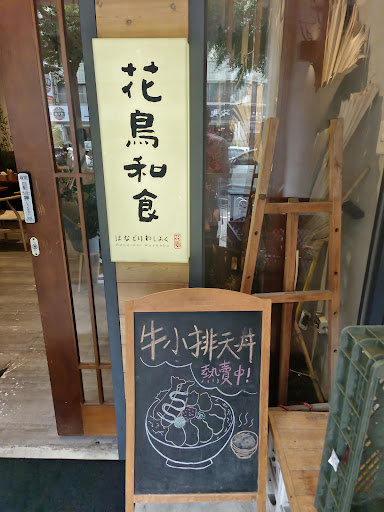 花鳥和食
はなどりわしょく
牛小排天丼
熱賣中!